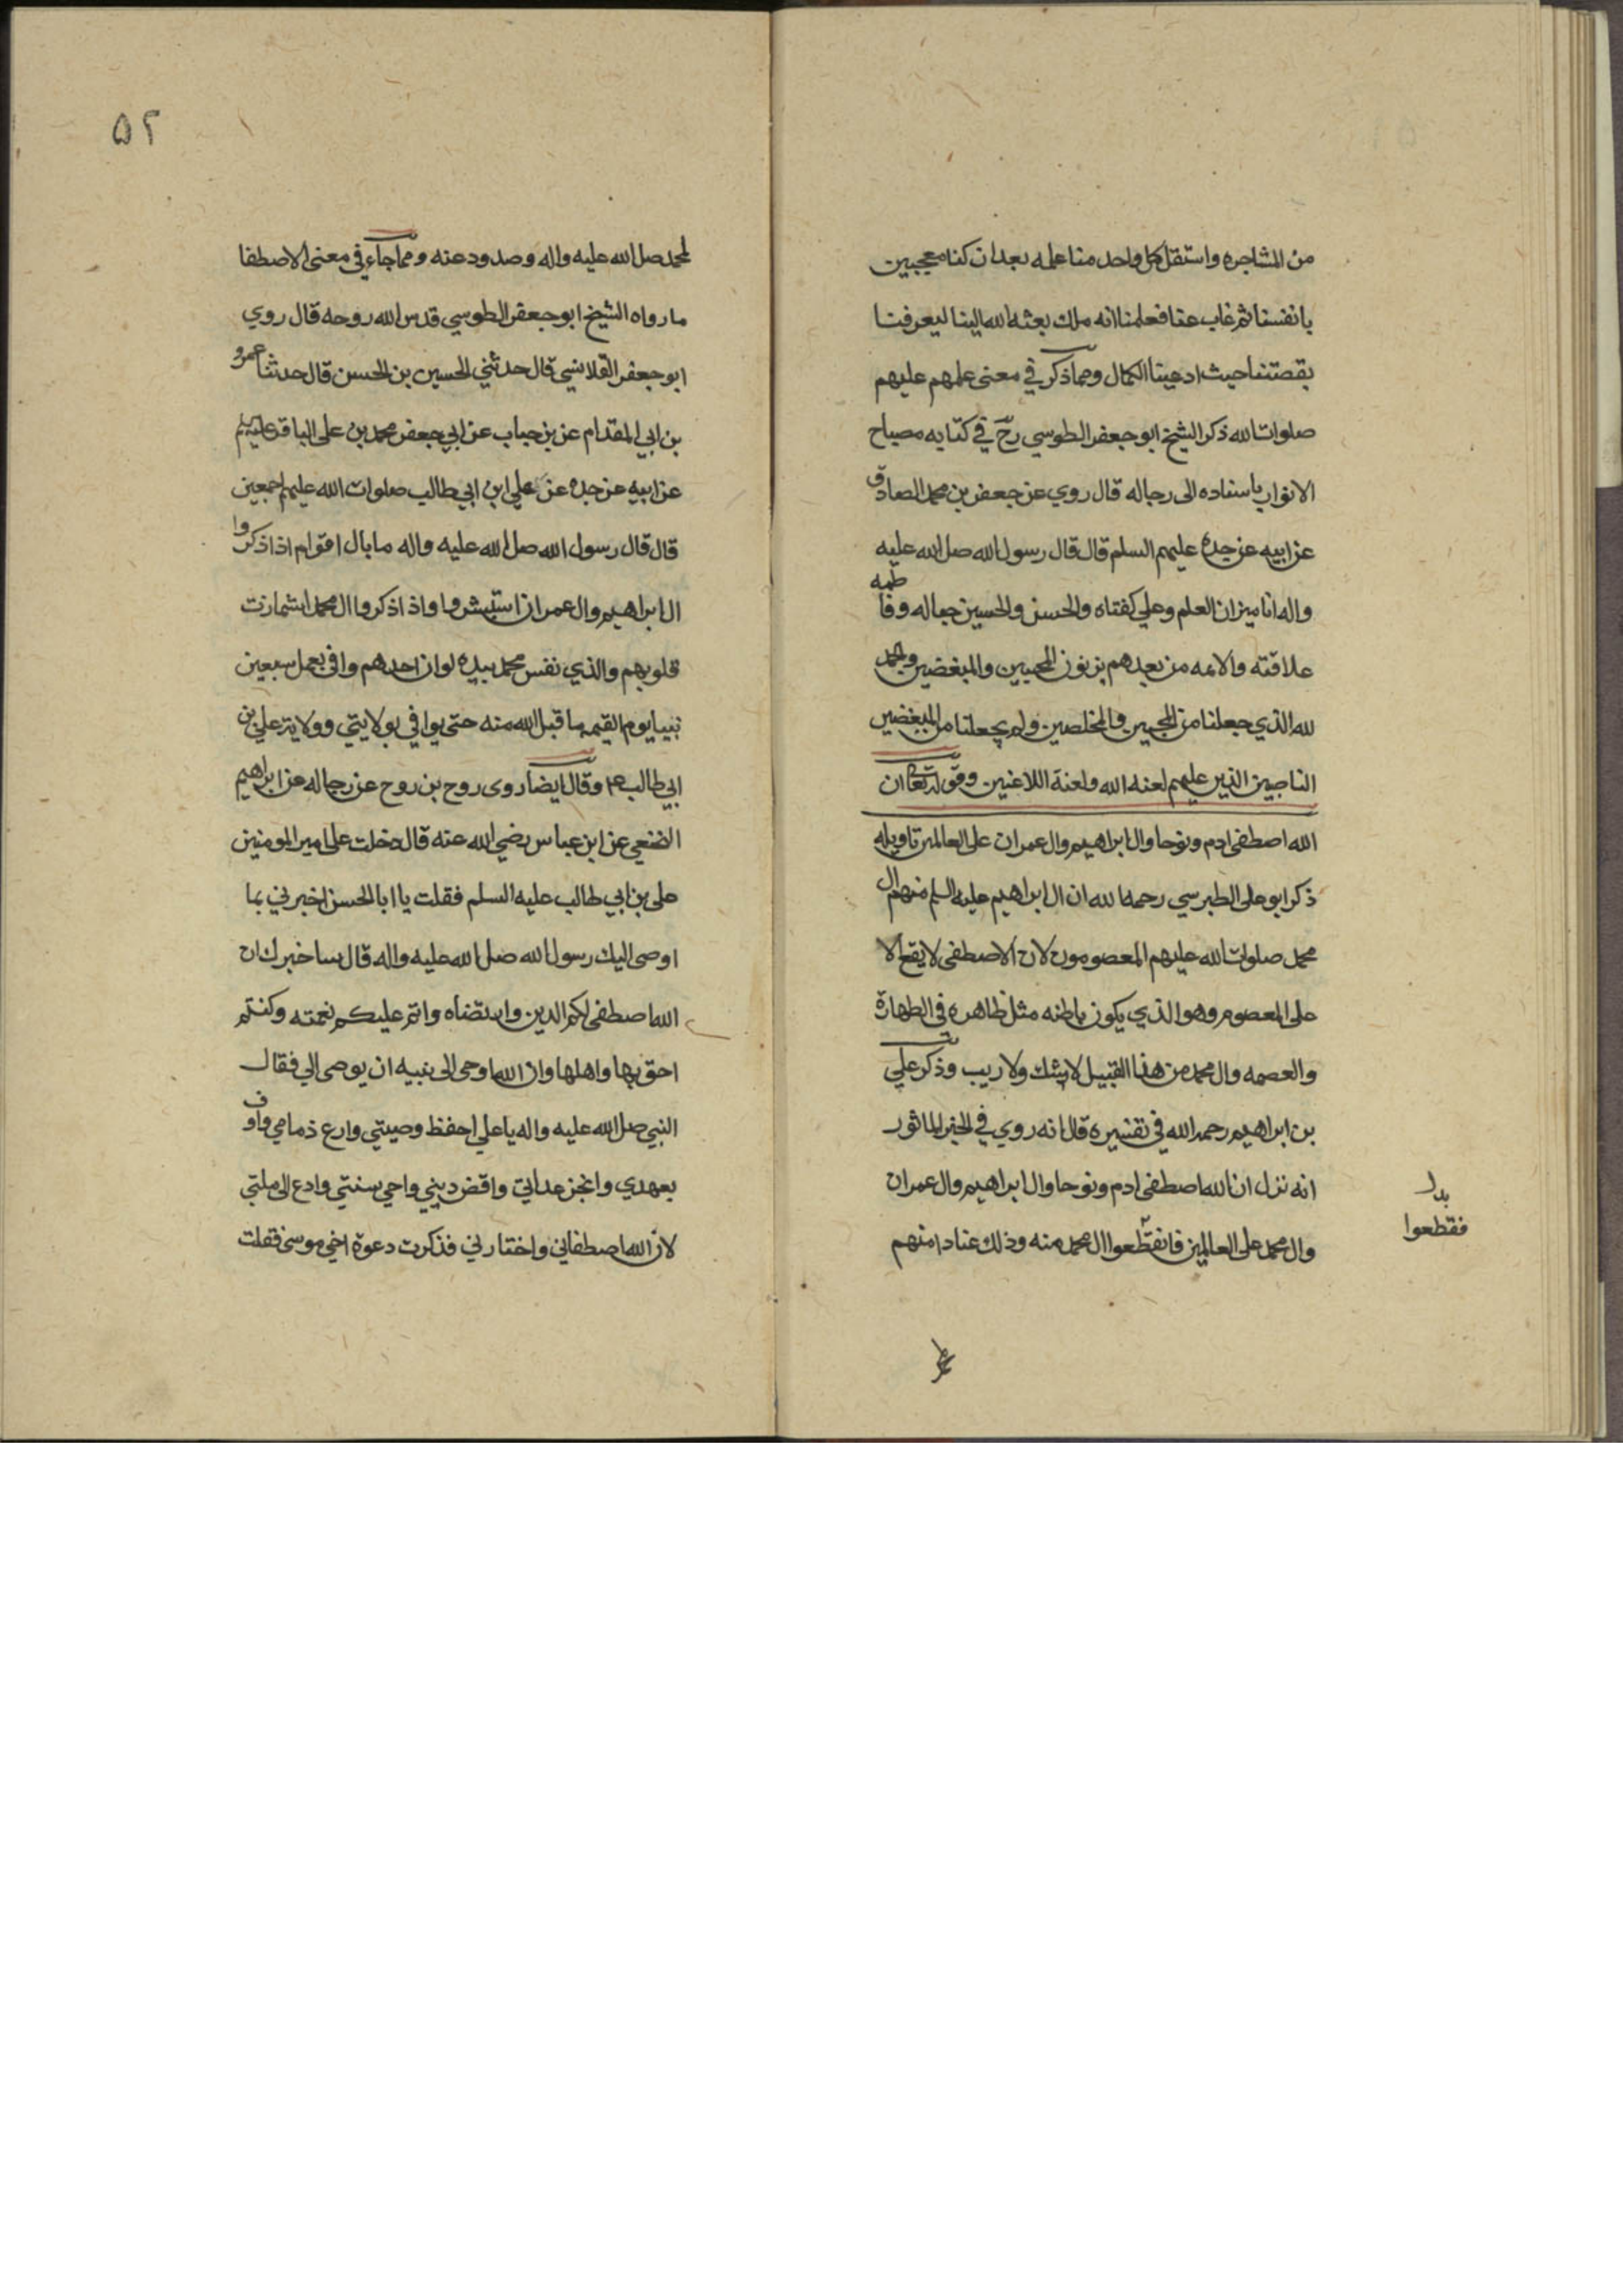 من المشاجره واستقل كل واحد منا علمه بعد ان كنا معجبين
بانفسنا ثم غاب عنا فعلمنا انه ملك بعثه الله الينا ليعرفنا
بقصتنا حيث ادعينا الكمال ومما ذكر في معنى علمهم عليهم
صلوات الله ذكر الشيخ ابو جعفر الطوسي رح في كتابه مصباح
الانوار باسناده الى رجاله قال روي عن جعفر بن محمد الصادق
عن ابيه عن جده عليهم السلم قال قال رسول الله صل الله عليه
واله انا ميزان العلم وعلي كفتاه والحسن والحسين حباله وفاطمه
علاقته والائمه من بعدهم يزنون المحبين والمبغضين والحمد
لله الذي جعلنا من المحبين والمخلصين ولم يجعلنا من المبغضين
الناصبين الذين عليهم لعنه الله ولعنة اللاعنين وقوله تعالى ان
الله اصطفى ادم ونوحا وال ابراهيم وال عمران على العالمين تاويله
ذكر ابو على الطبرسي رحمه الله ان ال ابراهيم عليه السلم منهم ال
محمد صلوات الله عليهم المعصومون لان الاصطفى لا يقع الا
على المعصوم وهو الذي يكون باطنه مثل ظاهره في الطهارة
والعصمه وال محمد من هذا القبيل لا بشك ولا ريب وذكر علي
بن ابراهيم رحمه الله في تفسيره قال انه روي في الخبر الماثور
انه نزل ان الله اصطفى ادم ونوحا وال ابراهيم وال عمران
وال محمد على العالمين فانقطعوا ال محمد منه وذلك عنادا منهم
بدل
فقطعوا
۵۲
لمحمد صل الله عليه واله وصدود عنه ومما جاء في معنى الاصطفا
ما رواه الشيخ ابو جعفر الطوسي قدس الله روحه قال روي
ابو جعفر القلانسي قال حدثني الحسين بن الحسن قال حدثنا عمرو
بن ابي المقدام عن بن حباب عن ابي جعفر محمد بن على الباقر عليه السلم
عن ابيه عن جده عن علي ابن ابي طالب صلوات الله عليهم اجمعين
قال قال رسول الله صل الله عليه واله ما بال اقوام اذا ذكروا
ال ابراهيم وال عمران استبشروا واذا ذكروا ال محمد اشمازت
قلوبهم والذي نفس محمد بيده لو ان احدهم وافى بعمل سبعين
نبيا يوم القيمه ما قبل الله منه حتى يوافي بولايتي وولاية علي بن
ابي طالب ع م وقال ايضا روى روح بن روح عن رجاله عن ابراهيم
النخعي عن ابن عباس رضي الله عنه قال دخلت على امير المومنين
على بن ابي طالب عليه السلم فقلت يا ابا الحسن اخبرني بما
اوصى اليك رسول الله صل الله عليه واله قال ساخبرك ان
الله اصطفى لكم الدين وارتضاه واتم عليكم نعمته وكنتم
احق بها واهلها وان الله اوحى الى نبيه ان يوصى الي فقال
النبي صل الله عليه واله يا علي احفظ وصيتي وارع ذمامي واوف
بعهدي وانجز عداتي واقض ديني واحي سنتي وادع الى ملتي
لان الله اصطفاني واختارني فذكرت دعوة اخي موسى فقلت